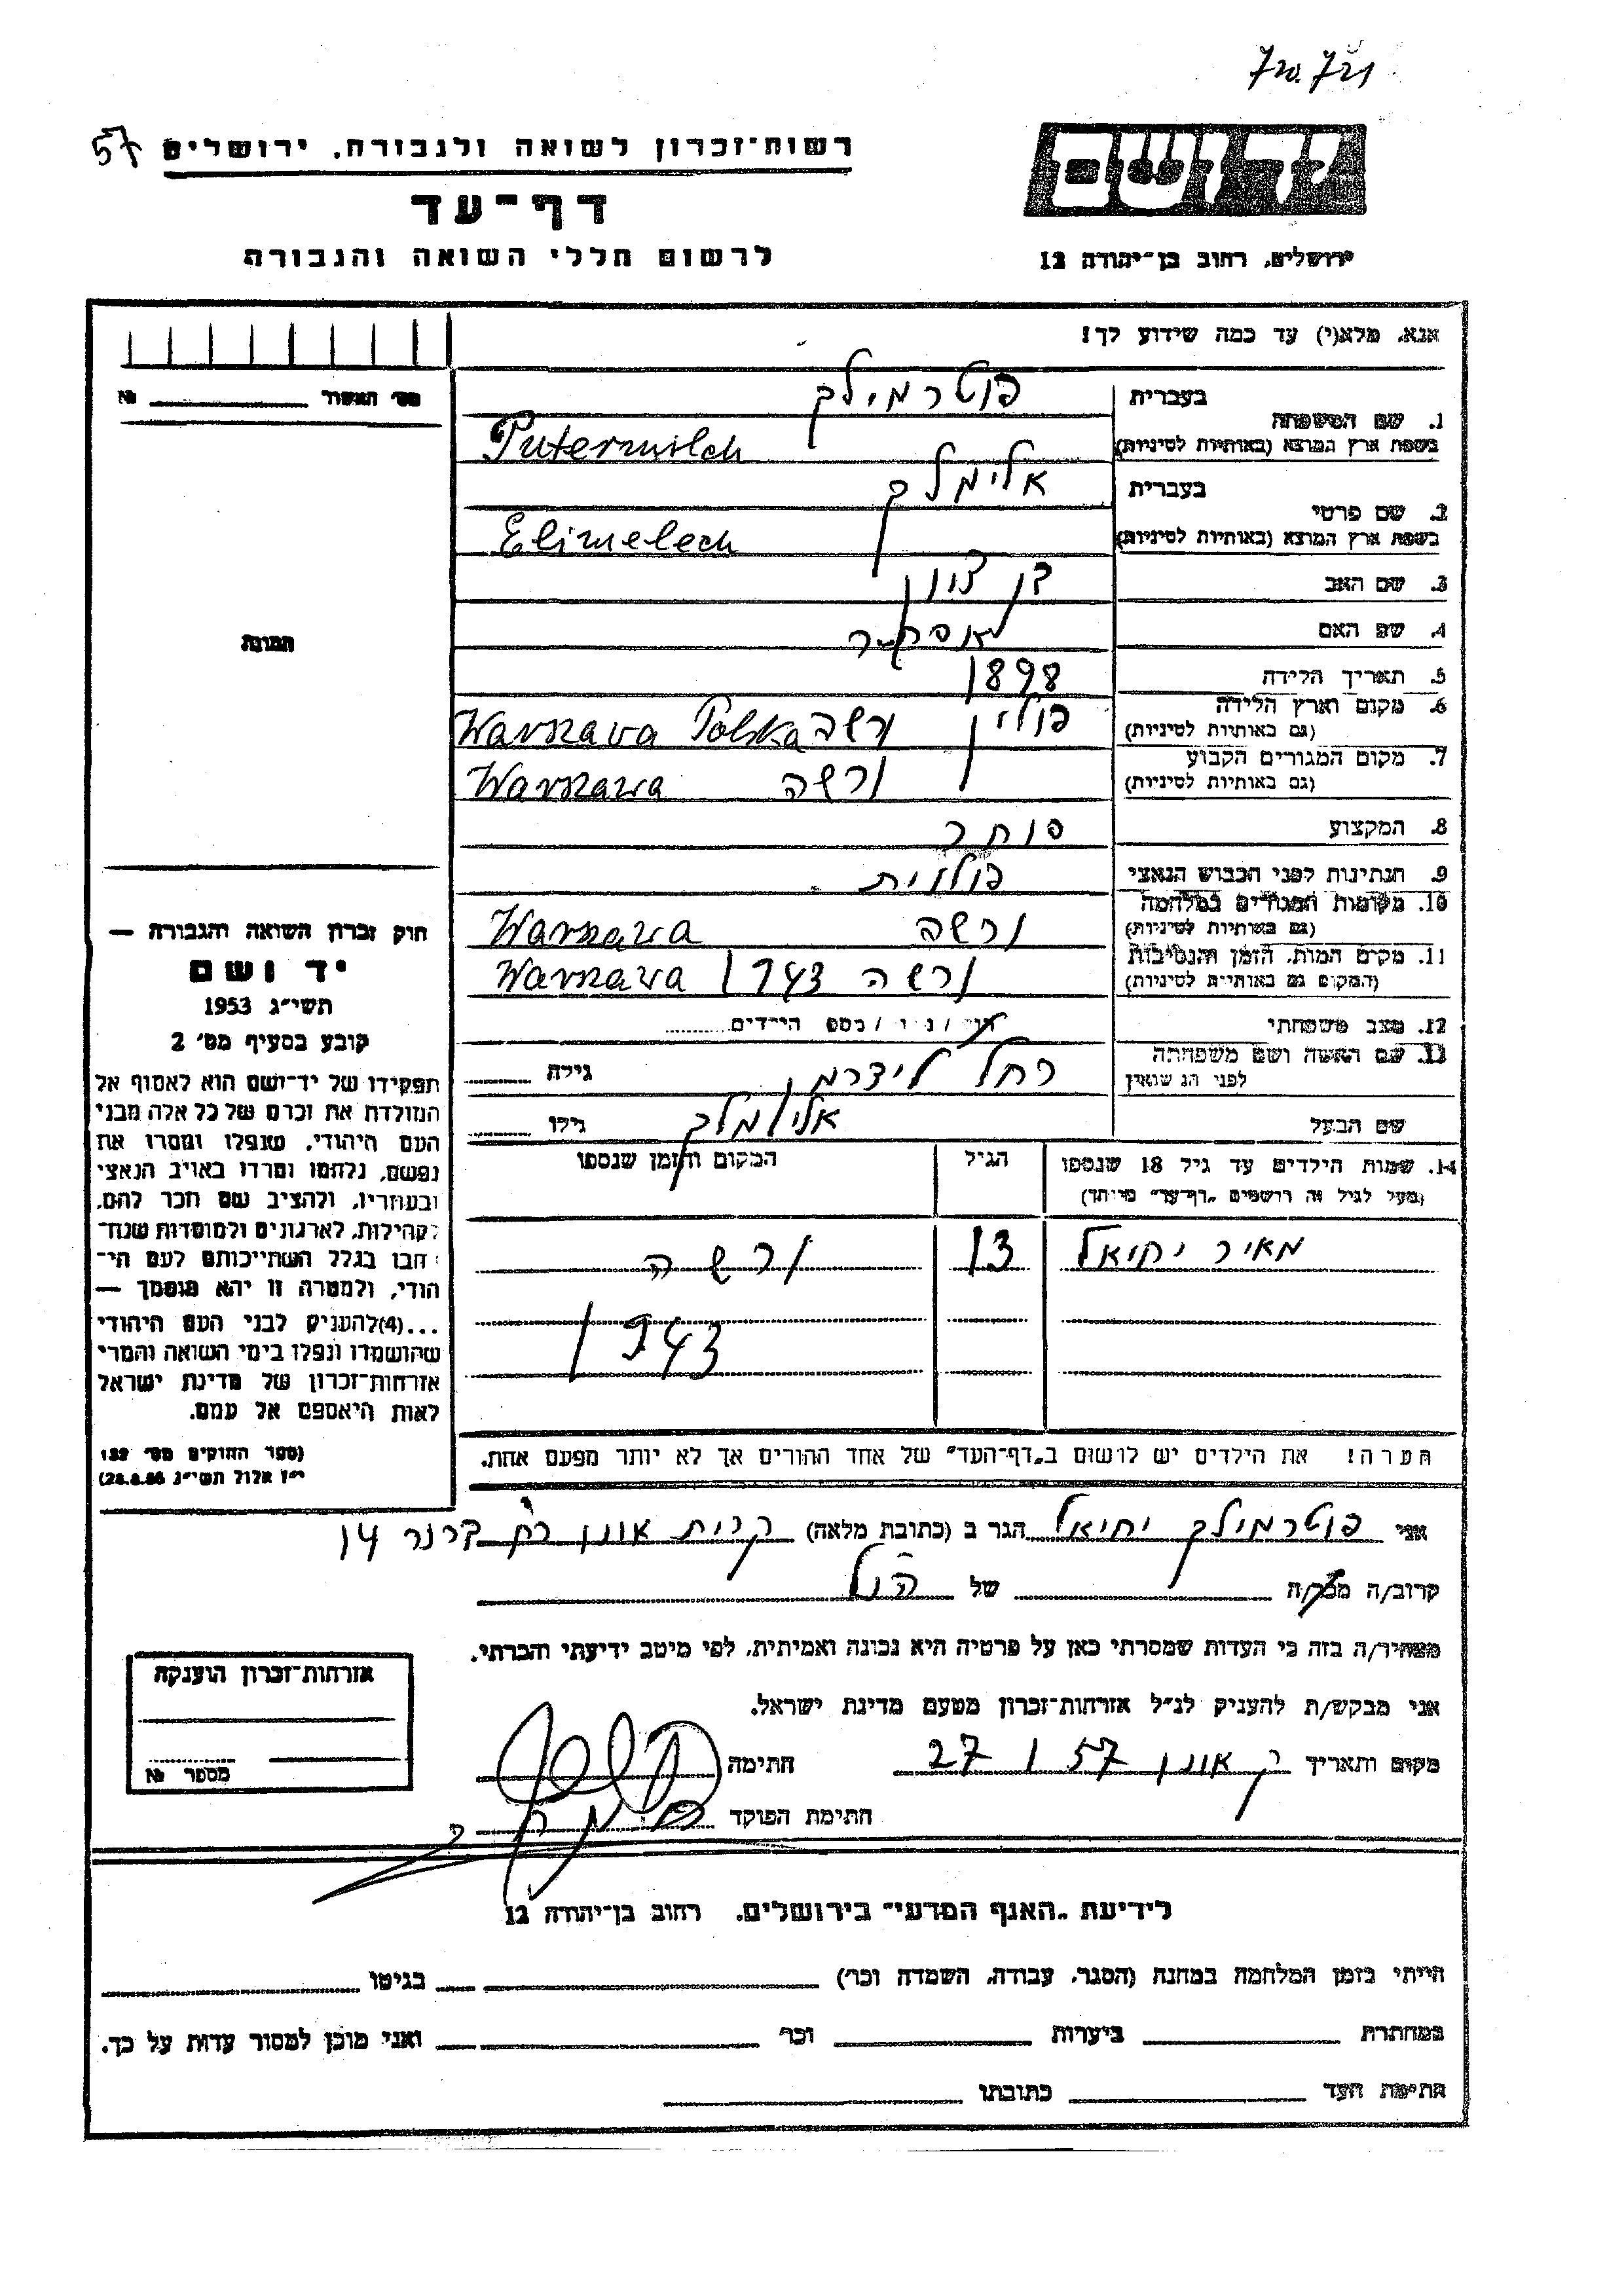 רשות-זכרון לשואה ולגבורה, ירושלים
57
דף-עד
לרשום חללי השואה והגבורה
יד ושם
ירושלים, רחוב בן-יהודה 12
אנא, מלא(י) עד כמה שידוע לך!
מס' האשור № 
1. שם המשפחה
בעברית פוטרמילך
בשפת ארץ המוצא (באותיות לטיניות) Putermilch
2. שם פרטי
בעברית אלימלך
בשפת ארץ המוצא (באותיות לטיניות) Elimelech
3. שם האב בן ציון
4. שם האם
5. תאריך הלידה 1898
6. מקום וארץ הלידה
(גם באותיות לטיניות) פולין ורשה Warszawa Polska
7. מקום המגורים הקבוע
(גם באותיות לטיניות) ורשה Warszawa
8. המקצוע סוחר
9. הנתינות לפני הכבוש הנאצי פולנית
10. מקומות המגורים במלחמה
(גם באותיות לטיניות) ורשה Warszawa
11. מקום המות, הזמן והנסיבות
(המקום גם באותיות לטיניות) ורשה 1943 Warszawa
12. מצב משפחתי / נ / מספר הילדים
13. שם האשה ושם משפחתה
לפני הנשואין רחל לידרמן גילה
שם הבעל אלימלך גילו
תמונה
14. שמות הילדים עד גיל 18 שנספו הגיל המקום והזמן שנספו
(מעל לגיל זה רושמים "דף-עד" מיוחד)
מאיר יחיאל 13 ורשה
1943
חוק זכרון השואה והגבורה —
יד ושם
תשי"ג 1953
קובע בסעיף מס' 2
תפקידו של יד-ושם הוא לאסוף אל
המולדת את זכרם של כל אלה מבני
העם היהודי, שנפלו ומסרו את
נפשם, נלחמו ומרדו באויב הנאצי
ובעוזריו, ולהציב שם וזכר להם,
לקהילות, לארגונים ולמוסדות שנח-
רבו בגלל השתייכותם לעם הי-
הודי, ולמטרה זו יהא מוסמך —
...(4) להעניק לבני העם היהודי
שהושמדו ונפלו בימי השואה והמרי
אזרחות-זכרון של מדינת ישראל
לאות היאספם אל עמם.
(ספר החוקים מס' 132
י"ז אלול תשי"ג
הערה! את הילדים יש לרשום ב"דף-העד" של אחד ההורים אך לא יותר מפעם אחת.
אני פוטרמילך יחיאל הגר ב (כתובת מלאה) קרית אונו רח' 14
קרוב/ה מכר/ה של הנ"ל
מצהיר/ה בזה כי העדות שמסרתי כאן על פרטיה היא נכונה ואמיתית, לפי מיטב ידיעתי והכרתי.
אני מבקש/ת להעניק לנ"ל אזרחות-זכרון מטעם מדינת ישראל.
מקום ותאריך ק אונו 27 1 57 חתימה
חתימת הפוקד
אזרחות-זכרון הוענקה
מספר №
לידיעת "האגף המדעי" בירושלים, רחוב בן-יהודה 12
הייתי בזמן המלחמה במחנה (הסגר, עבודה, השמדה וכו') בגיטו
במחתרת ביערות וכו' ואני מוכן למסור עדות על כך.
חתימת העד כתובתו